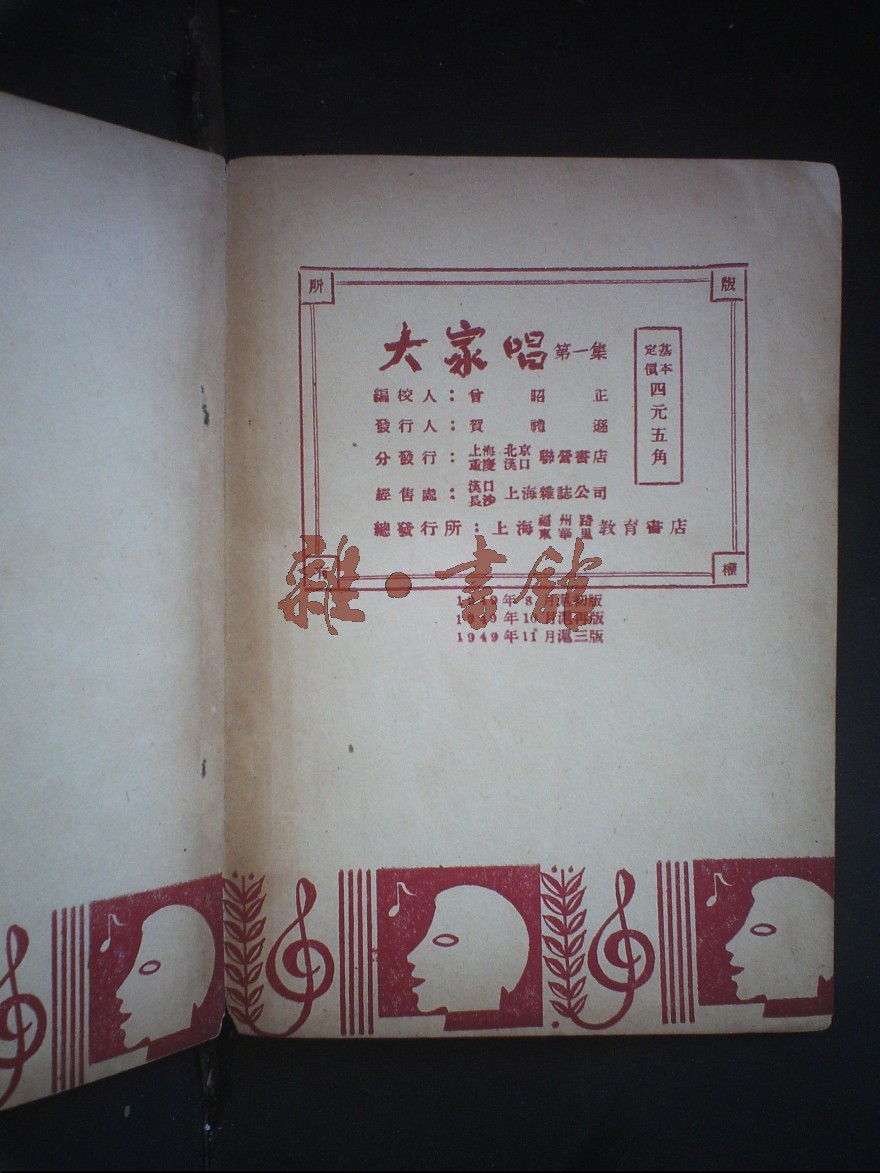 版
所
大家唱 第一集
基本定價四元五角
編校人：曾昭正
發行人：賀禮遜
分發行：上海 北京 重慶 漢口 聯營書店
經售處：漢口 長沙 上海雜誌公司
總發行所：上海 福州路 東華里 教育書店
權
1949年8月滬初版
1949年10月滬再版
1949年11月滬三版
雜·書館